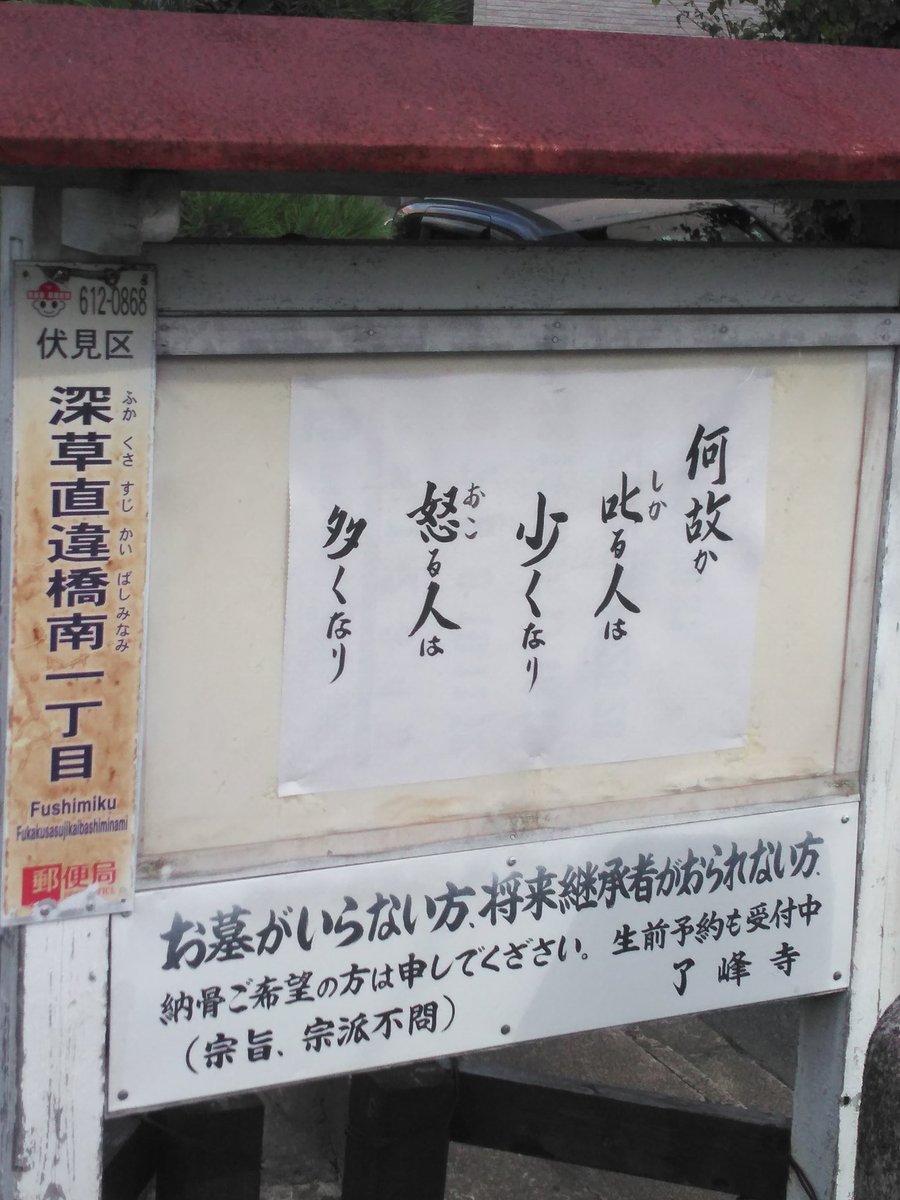 612-0868
伏見区
深草直違橋南一丁目
ふか くさ すじ かい ばし みなみ
Fushimiku
Fukakusasujikaibashiminami
郵便局
何故か
叱る人は
しか
少くなり
怒る人は
おこ
多くなり
お墓がいらない方、将来継承者がおられない方、
納骨ご希望の方は申しでください。生前予約も受付中
(宗旨、宗派不問)
了峰寺